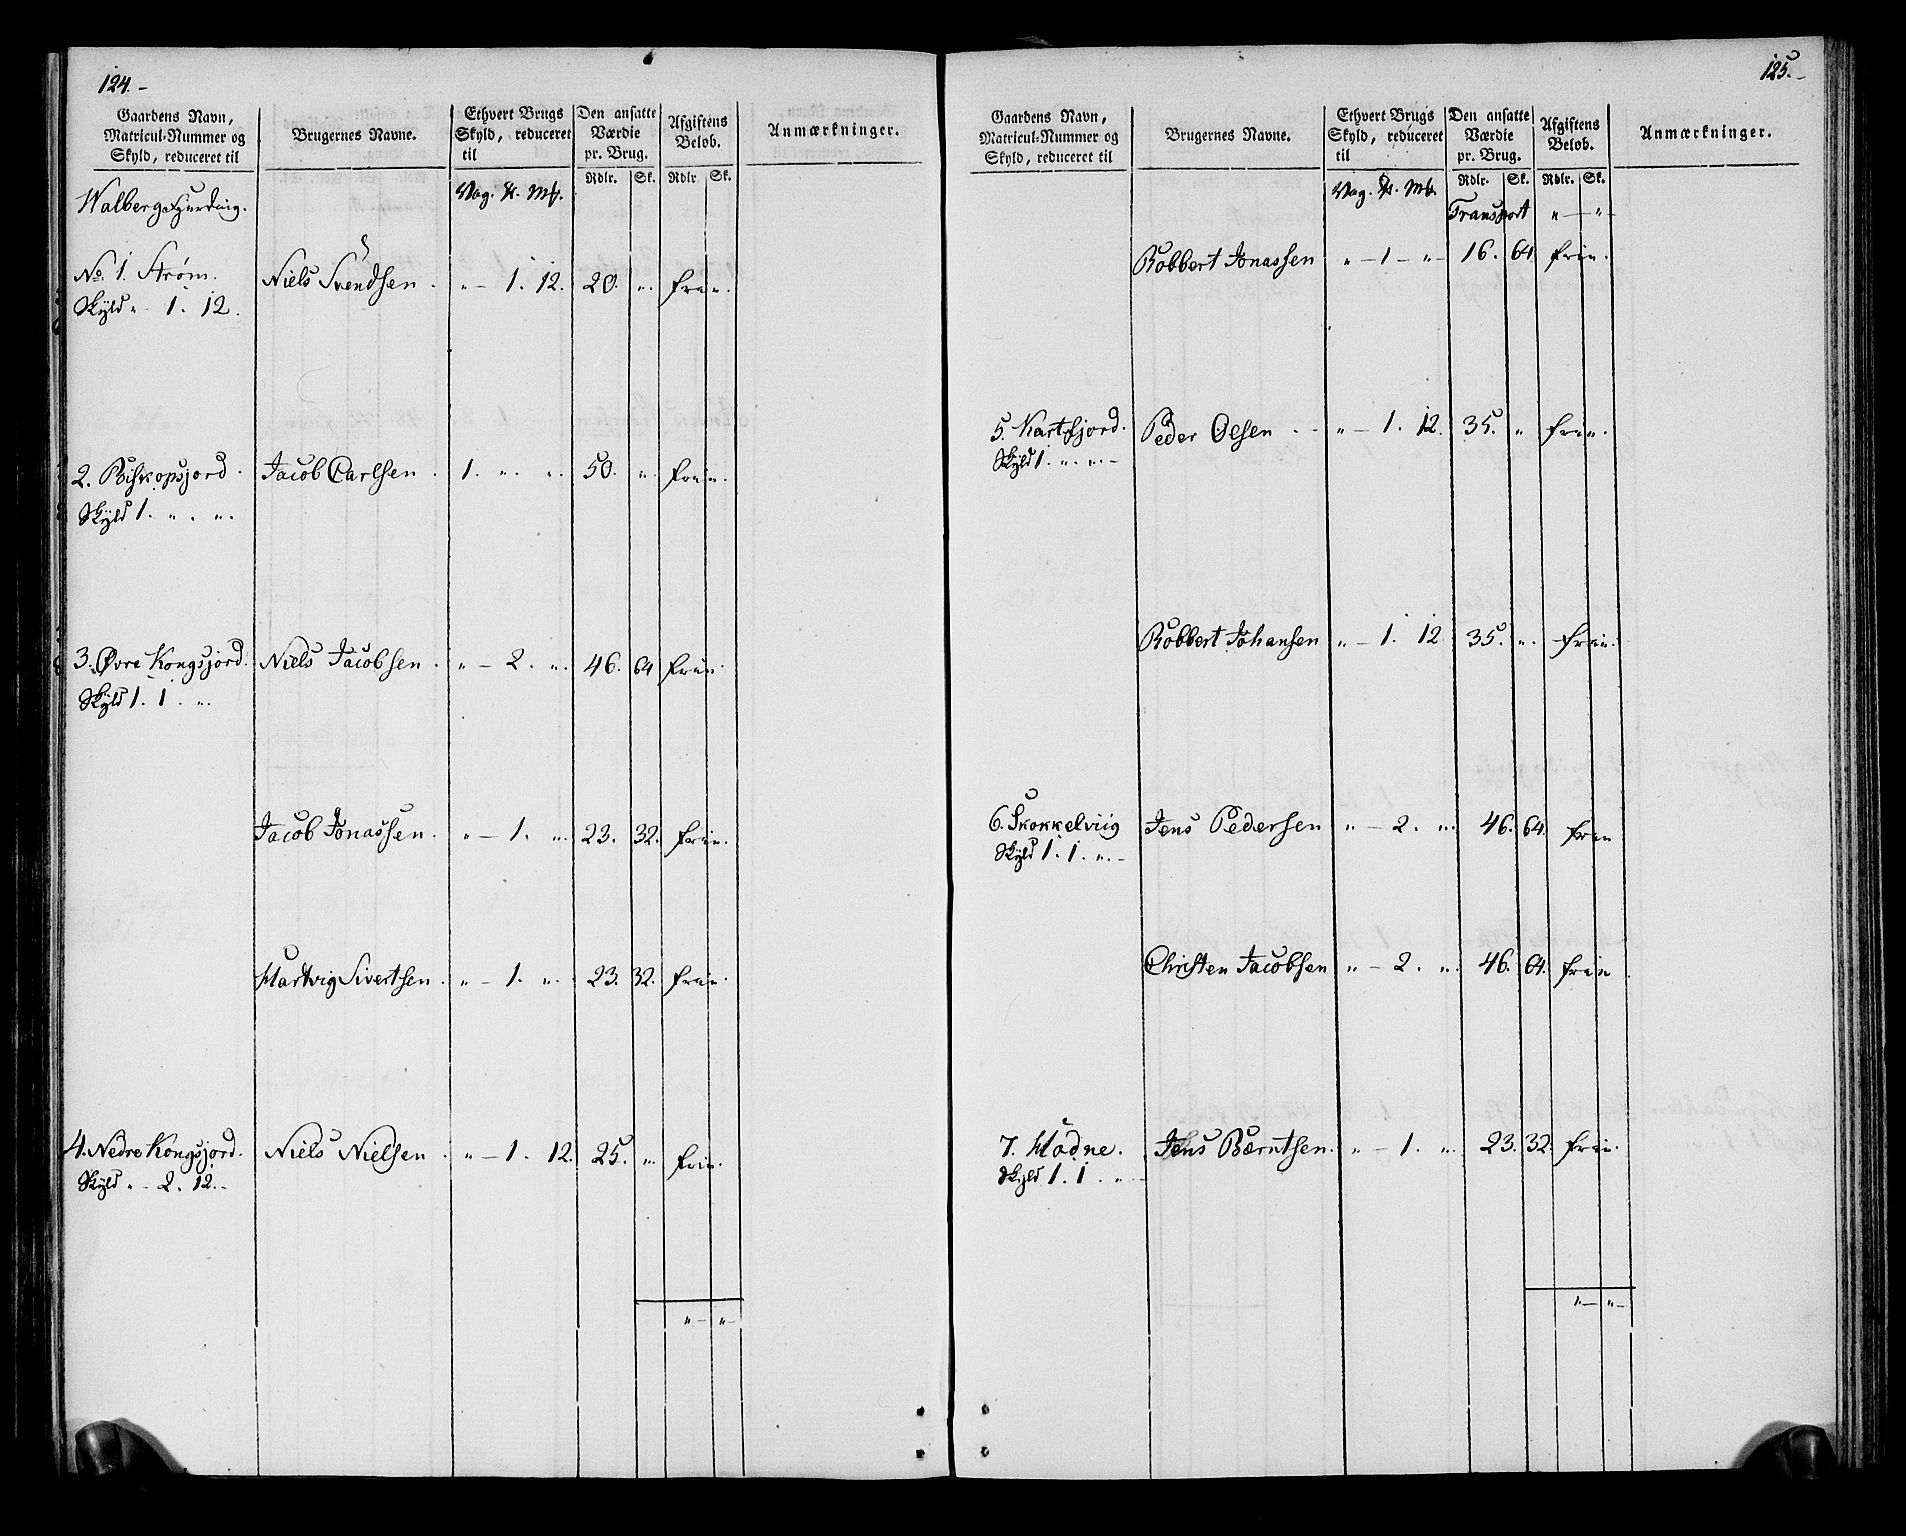 124.-
Gaardens Navn, Matricul-Nummer og Skyld, reduceret til
Brugernes Navne.
Ethvert Brugs Skyld, reduceret til
Den ansatte Værdie pr. Brug.
Afgiftens Beløb.
Anmærkninger.
Rdlr. Sk. Rdlr Sk.
Walbergs Fjerding. Vog. ℔. Mk.
No. 1. Strøm. Niels Svendsen. " - 1. 12. 20. ". frie.
Skyld " - 1. 12.
2. Biskopsjord. Jacob Carlsen. 1. ". ". 50. ". frie.
Skyld 1. ". ".
3. Øvre Kongsjord. Niels Jacobsen. " - 2. ". 46. 64 frie.
Skyld 1. 1. ".
Jacob Jonassen. " - 1. ". 23. 32. frie.
Hartvig Sivertsen. " - 1. ". 23. 32. frie.
4. Nedre Kongsjord. Niels Nielsen. " - 1. 12. 25. ". frie.
Skyld " - 2. 12.-
" - " -
125.-
Gaardens Navn, Matricul-Nummer og Skyld, reduceret til
Brugernes Navne.
Ethvert Brugs Skyld, reduceret til
Den ansatte Værdie pr. Brug.
Afgiftens Beløb.
Anmærkninger.
Rdlr. Sk. Rdlr. Sk.
Vog. ℔. Mk.
Transport " - " -
Robbert Jonassen " - 1 - " - 16. 64 frie.
5. Kartfjord. Peder Oesen - - " - 1. 12. 35. " frie.
Skyld 1. ". ". -
Robbert Johansen " - 1. 12 35. ". frie.
6. Skokkelviig Jens Pedersen " - 2. ". 46. 64. frie
Skyld 1. 1. ". -
Christen Jacobsen " - 2. ". 46. 64. frie
7. Hadne. Jens Bærntsen. " - 1. ". 23. 32. frie.
Skyld 1. 1. ". -
" - " -